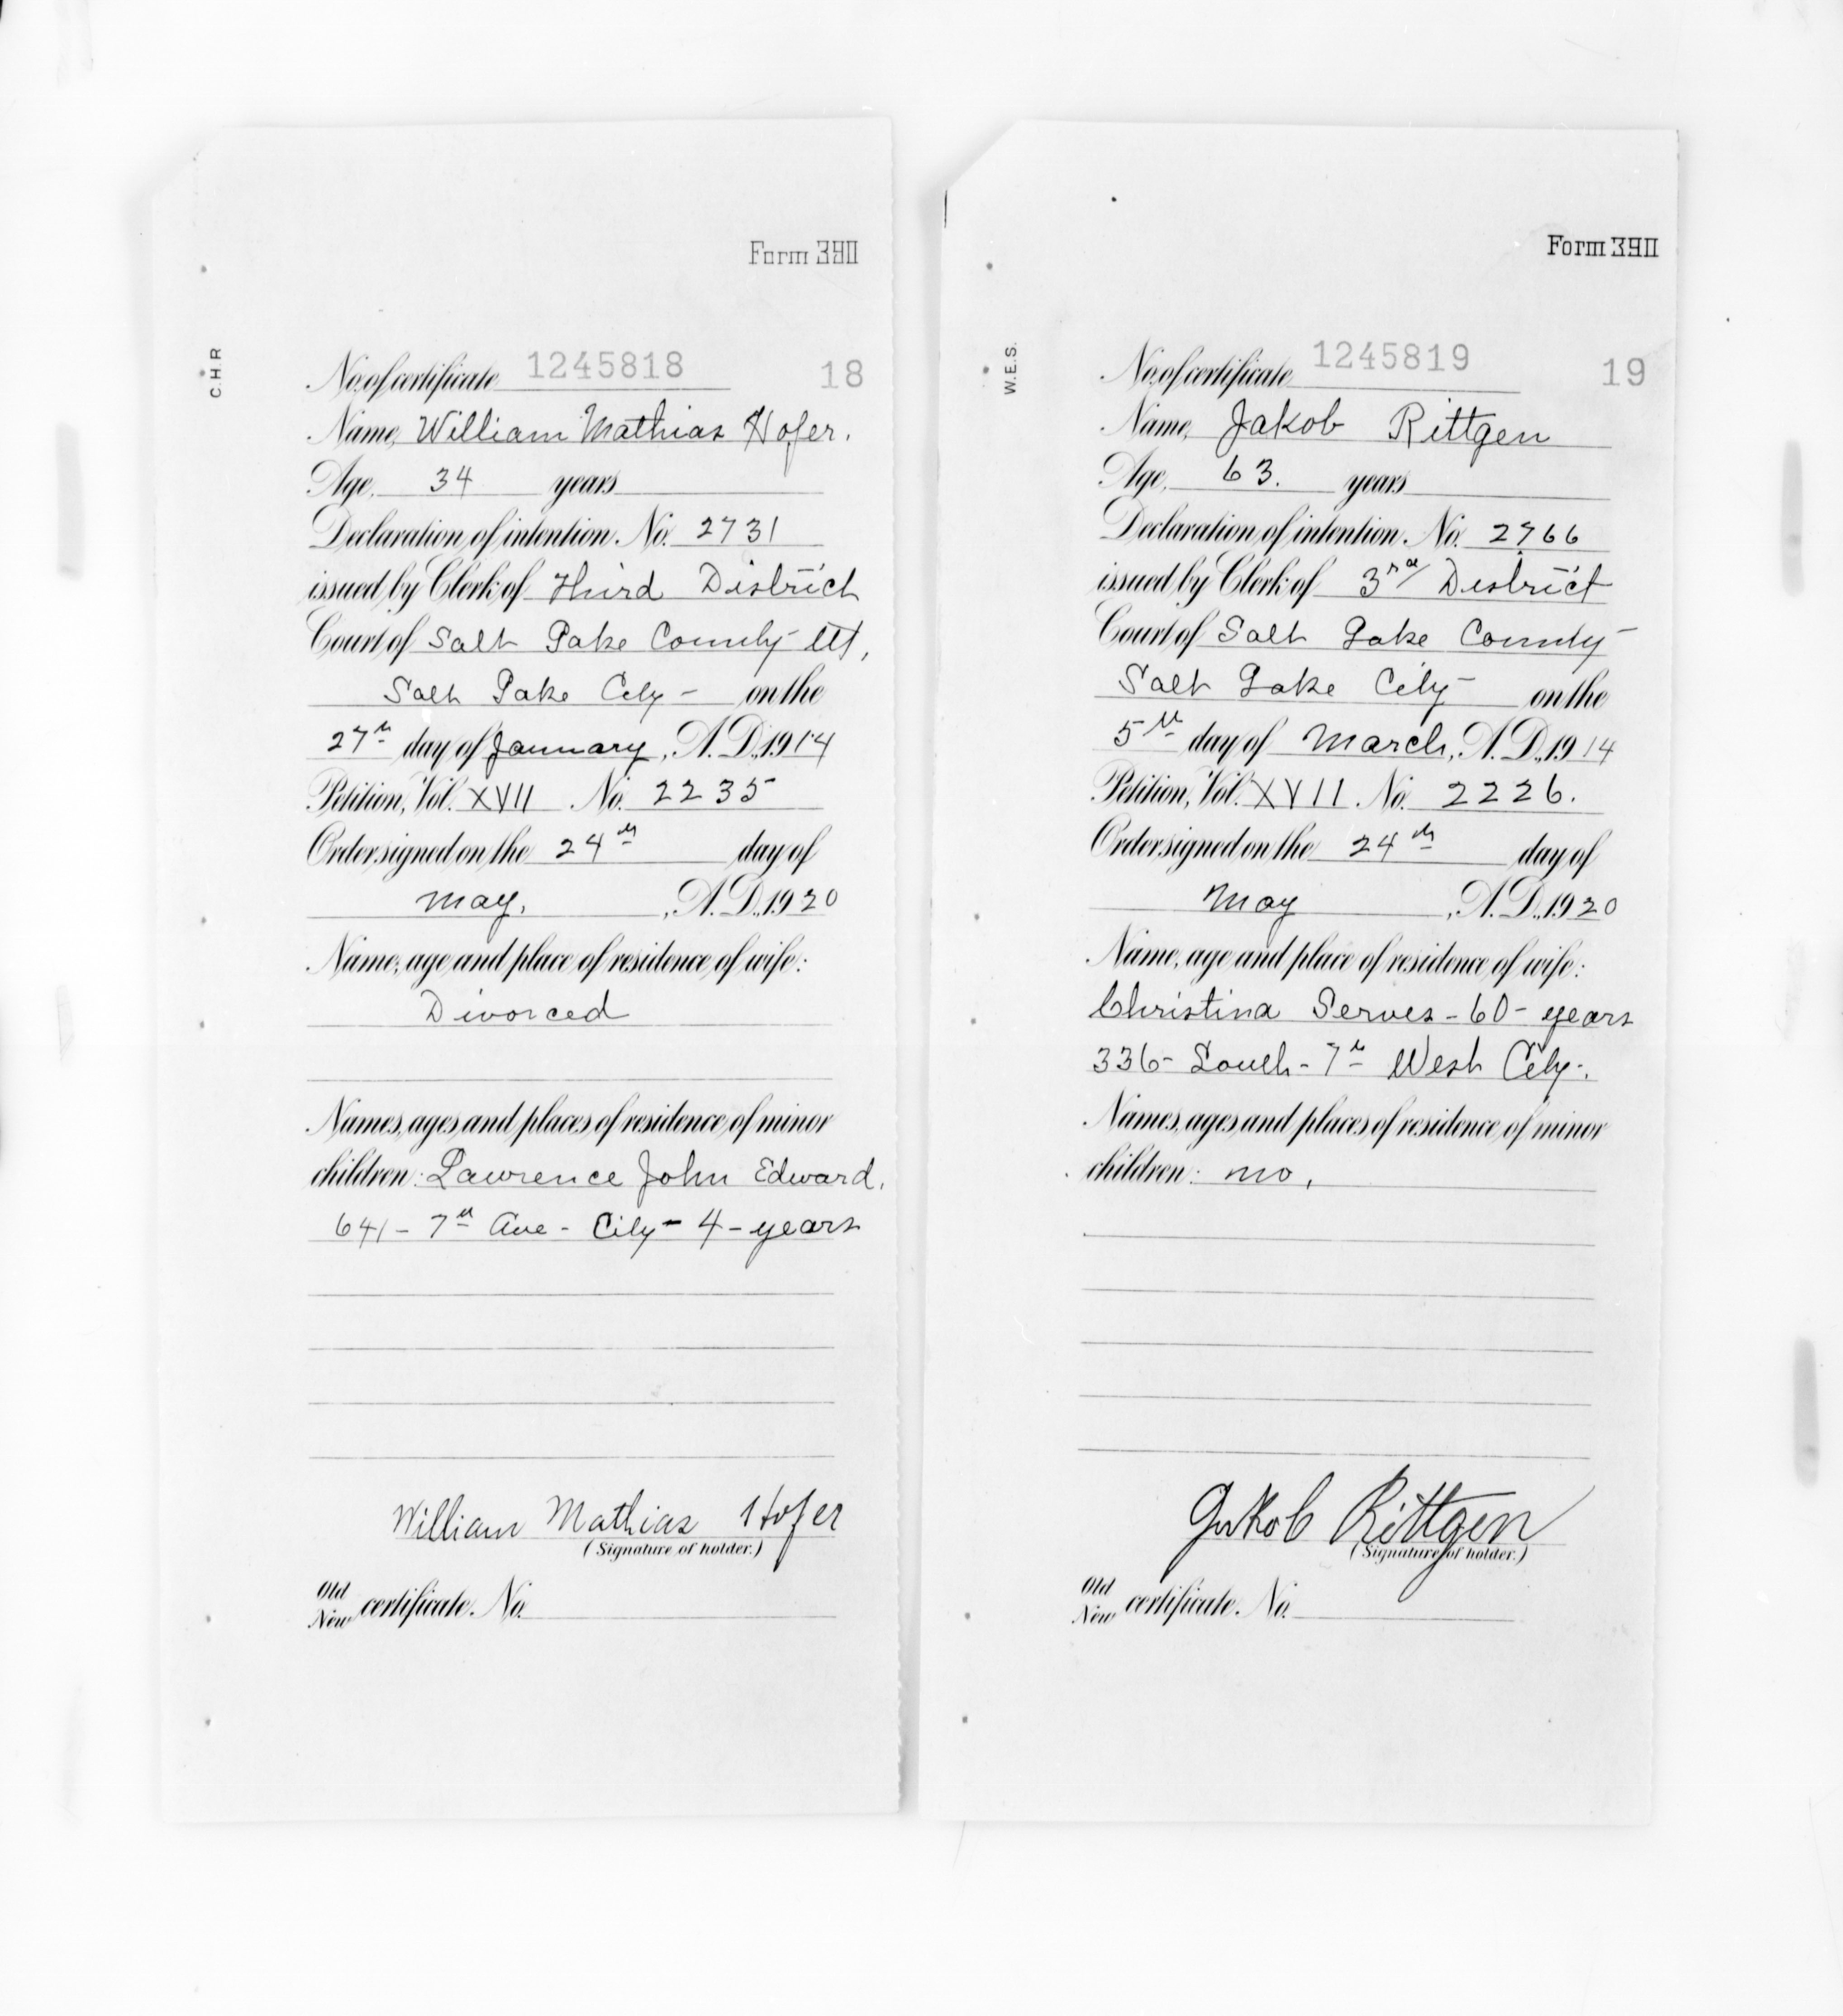 Form 390
C.H.R
No. of certificate 1245818 18
Name, William Mathias Hofer.
Age, 34 years
Declaration of intention, No. 2731
issued by Clerk of Third District
Court of Salt Lake County Ut,
Salt Lake City - on the
27th day of January, A.D., 1914
Petition, Vol. XVII No. 2235
Order signed on the 24th day of
May, , A.D., 1920
Name, age and place of residence of wife:
Divorced
Names, ages and places of residence of minor
children: Lawrence John Edward,
641 - 7th Ave - City - 4 - years
William Mathias Hofer
(Signature of holder.)
Old
New certificate, No.
Form 390
W.E.S.
No. of certificate 1245819 19
Name, Jakob Rittgen
Age, 63. years
Declaration of intention, No. 2766
issued by Clerk of 3rd District
Court of Salt Lake County
Salt Lake City on the
5th day of March, A.D., 1914
Petition, Vol. XVII. No. 2226.
Order signed on the 24th day of
May , A.D., 1920
Name, age and place of residence of wife:
Christina Serves - 60 - years
336 - South - 7th West City -.
Names, ages and places of residence of minor
children: no,
Jakob Rittgen
(Signature of holder.)
Old
New certificate, No.